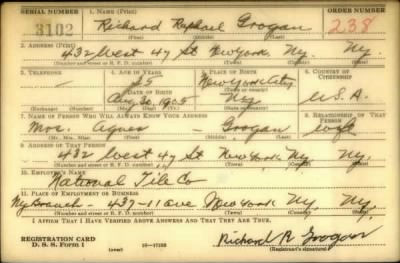 SERIAL NUMBER 1. NAME (Print) ORDER NUMBER
3102 Richard Raphael Grogan 238
(First) (Middle) (Last)
2. ADDRESS (Print)
432 West 47 St New York Ny. Ny.
(Number and street or R. F. D. number) (Town) (County) (State)
3. TELEPHONE 4. AGE IN YEARS 5. PLACE OF BIRTH 6. COUNTRY OF CITIZENSHIP
35 New York City
(Town or county)
DATE OF BIRTH
Aug 30 1905 Ny U.S.A.
(Exchange) (Number) (Mo.) (Day) (Yr.) (State or country)
7. NAME OF PERSON WHO WILL ALWAYS KNOW YOUR ADDRESS 8. RELATIONSHIP OF THAT PERSON
Mrs. Agnes - Grogan Wife
(Mr., Mrs., Miss) (First) (Middle) (Last)
9. ADDRESS OF THAT PERSON
432 West 47 St New York Ny. Ny.
(Number and street or R. F. D. number) (Town) (County) (State)
10. EMPLOYER'S NAME
National Tile Co
11. PLACE OF EMPLOYMENT OR BUSINESS
Ny Branch - 437-11 ave New York Ny Ny.
(Number and street or R. F. D. number) (Town) (County) (State)
I AFFIRM THAT I HAVE VERIFIED ABOVE ANSWERS AND THAT THEY ARE TRUE.
REGISTRATION CARD
D. S. S. Form 1 (over) 16-17105 Richard R Grogan
(Registrant's signature)